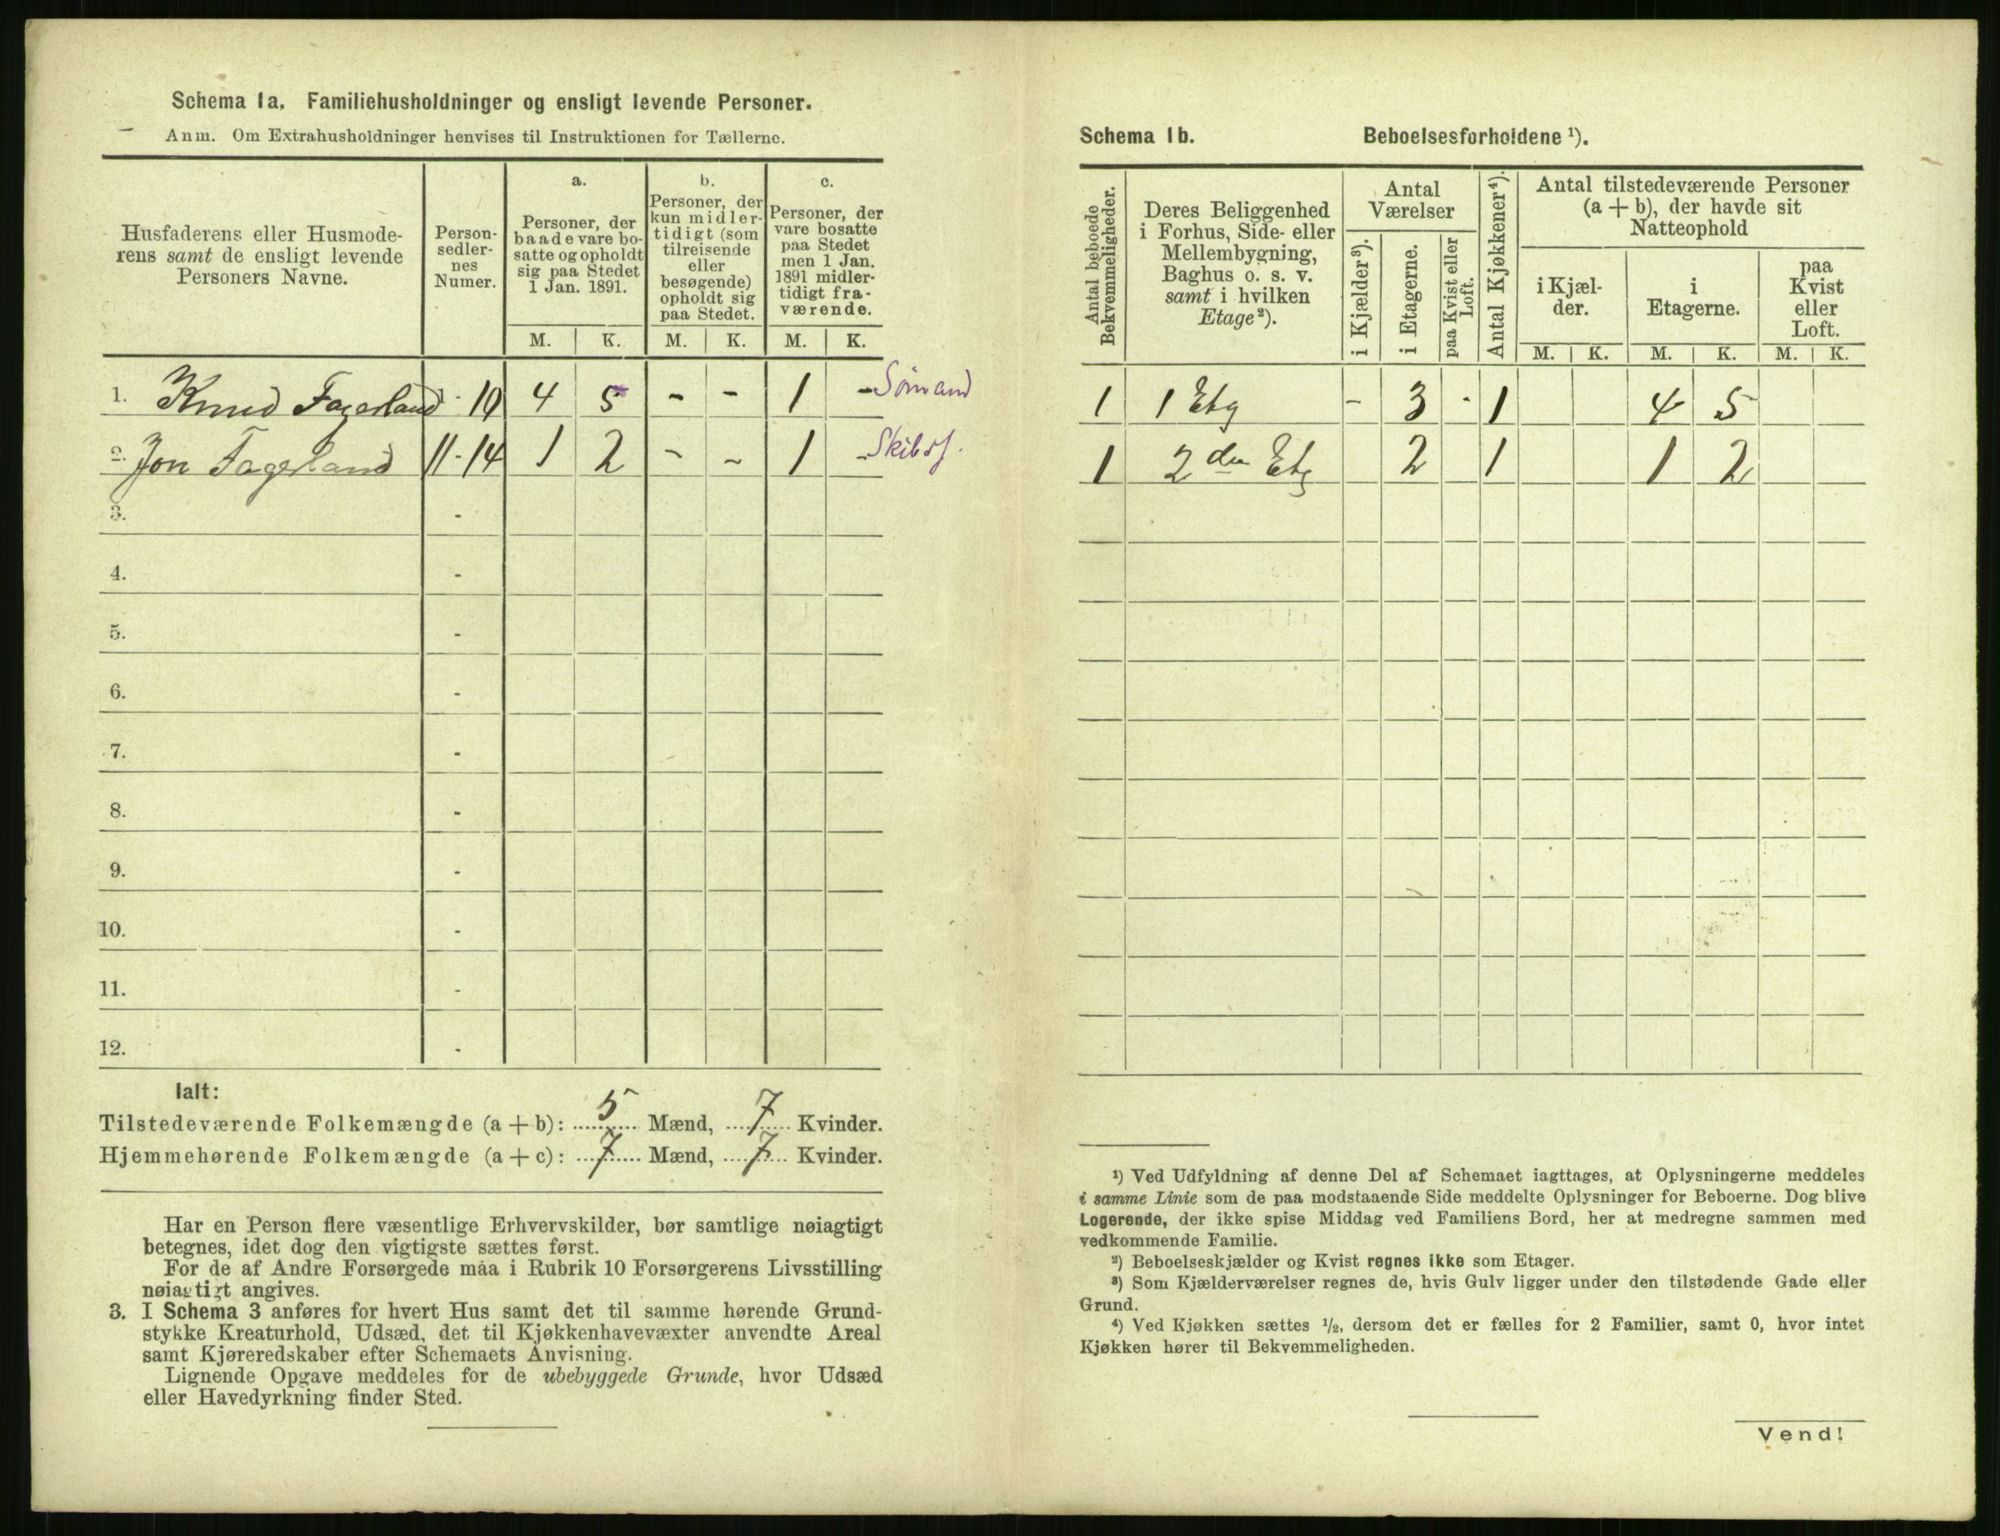 Schema 1a. Familiehusholdninger og ensligt levende Personer.
Anm. Om Extrahusholdninger henvises til Instruktionen for Tællerne.
Husfaderens eller Husmode-
rens samt de ensligt levende
Personers Navne.
Person-
sedler-
nes
Numer.
a.
Personer, der
baade vare bo-
satte og opholdt
sig paa Stedet
1 Jan. 1891.
b.
Personer, der
kun midler-
tidigt (som
tilreisende
eller
besøgende)
opholdt sig
paa Stedet.
c.
Personer, der
vare bosatte
paa Stedet
men 1 Jan.
1891 midler-
tidigt fra-
værende.
M. K. M. K. M. K.
1. Knud Fagerland - 10 4 5 - - 1 - Sømand
2. Jon Fagerland 11 - 14 1 2 - - 1 - Skibsf.
3. -
4. -
5. -
6. -
7. -
8. -
9. -
10. -
11. -
12. -
Ialt:
Tilstedeværende Folkemængde (a + b): 5 Mænd, 7 Kvinder.
Hjemmehørende Folkemængde (a + c): 7 Mænd, 7 Kvinder.
Har en Person flere væsentlige Erhvervskilder, bør samtlige nøiagtigt
betegnes, idet dog den vigtigste sættes først.
For de af Andre Forsørgede maa i Rubrik 10 Forsørgerens Livsstilling
nøiagtigt angives.
3. I Schema 3 anføres for hvert Hus samt det til samme hørende Grund-
stykke Kreaturhold, Udsæd, det til Kjøkkenhavevæxter anvendte Areal
samt Kjøreredskaber efter Schemaets Anvisning.
Lignende Opgave meddeles for de ubebyggede Grunde, hvor Udsæd
eller Havedyrkning finder Sted.
Schema 1b. Beboelsesforholdene ¹).
Antal beboede
Bekvemmeligheder.
Deres Beliggenhed
i Forhus, Side- eller
Mellembygning,
Baghus o. s. v.
samt i hvilken
Etage²).
Antal
Værelser
i Kjælder³).
i Etagerne.
paa Kvist eller
Loft.
Antal Kjøkkener⁴).
Antal tilstedeværende Personer
(a + b), der havde sit
Natteophold
i Kjæl-
der.
i
Etagerne.
paa
Kvist
eller
Loft.
M. K. M. K. M. K.
1 1 Etg - 3 - 1 4 5
1 2den Etg 2 1 1 2
¹) Ved Udfyldning af denne Del af Schemaet iagttages, at Oplysningerne meddeles
i samme Linie som de paa modstaaende Side meddelte Oplysninger for Beboerne. Dog blive
Logerende, der ikke spise Middag ved Familiens Bord, her at medregne sammen med
vedkommende Familie.
²) Beboelseskjælder og Kvist regnes ikke som Etager.
³) Som Kjælderværelser regnes de, hvis Gulv ligger under den tilstødende Gade eller
Grund.
⁴) Ved Kjøkken sættes ¹/₂, dersom det er fælles for 2 Familier, samt 0, hvor intet
Kjøkken hører til Bekvemmeligheden.
Vend!